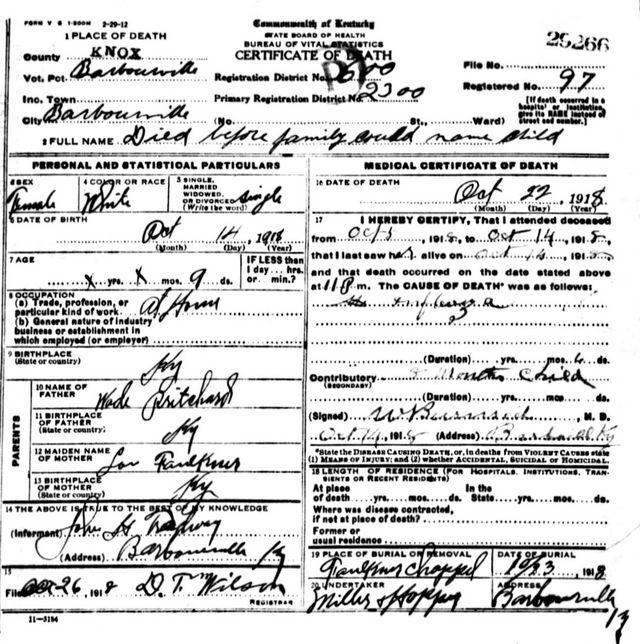 FORM V S 1-500M 2-29-12
Commonwealth of Kentucky
STATE BOARD OF HEALTH
BUREAU OF VITAL STATISTICS
CERTIFICATE OF DEATH
25266
1 PLACE OF DEATH
County KNOX
Vot. Pct. Barbourville
Inc. Town
City Barbourville (No. St., Ward)
Registration District No.
Primary Registration District No. 2300
File No.
Registered No. 97
[If death occurred in a hospital or institution, give its NAME instead of street and number.]
2 FULL NAME Died before family could name child
PERSONAL AND STATISTICAL PARTICULARS
3 SEX Female
4 COLOR OR RACE White
5 SINGLE, MARRIED WIDOWED, OR DIVORCED (Write the word) Single
6 DATE OF BIRTH Oct 14, 1918
(Month) (Day) (Year)
7 AGE x yrs. x mos. 9 ds.
IF LESS than 1 day... hrs. or min.?
8 OCCUPATION
(a) Trade, profession, or particular kind of work At Home
(b) General nature of industry business or establishment in which employed (or employer)
9 BIRTHPLACE (State or country) Ky
PARENTS
10 NAME OF FATHER Wade Pritchard
11 BIRTHPLACE OF FATHER (State or country) Ky
12 MAIDEN NAME OF MOTHER Lou Faulkner
13 BIRTHPLACE OF MOTHER (State or country) Ky
14 THE ABOVE IS TRUE TO THE BEST OF MY KNOWLEDGE
(Informant) John H
(Address) Barbourville Ky
15
Filed Oct 26, 1918 D. T. Wilson
REGISTRAR
11-3184
MEDICAL CERTIFICATE OF DEATH
16 DATE OF DEATH Oct 22, 1918
(Month) (Day) (Year)
17 I HEREBY CERTIFY, That I attended deceased
from Oct 5, 1918, to Oct 14, 1918,
that I last saw her alive on Oct 14, 1918
and that death occurred on the date stated above
at 11 P m. The CAUSE OF DEATH* was as follows:
Influenza
(Duration) yrs. mos. 4 ds.
Contributory Months Child
(SECONDARY)
(Duration) yrs. mos. ds.
(Signed) M. D.
Oct 14, 1918 (Address) Ky
*State the DISEASE CAUSING DEATH, or, in deaths from VIOLENT CAUSES state
(1) MEANS OF INJURY; and (2) whether ACCIDENTAL, SUICIDAL or HOMICIDAL.
18 LENGTH OF RESIDENCE (FOR HOSPITALS, INSTITUTIONS, TRANSIENTS OR RECENT RESIDENTS)
At place of death yrs. mos. ds. In the State yrs. mos. ds.
Where was disease contracted,
if not at place of death?
Former or
usual residence
19 PLACE OF BURIAL OR REMOVAL Faulkner Chappel
DATE OF BURIAL 10/23, 1918
20 UNDERTAKER Miller & Hopper
ADDRESS Barbourville
13